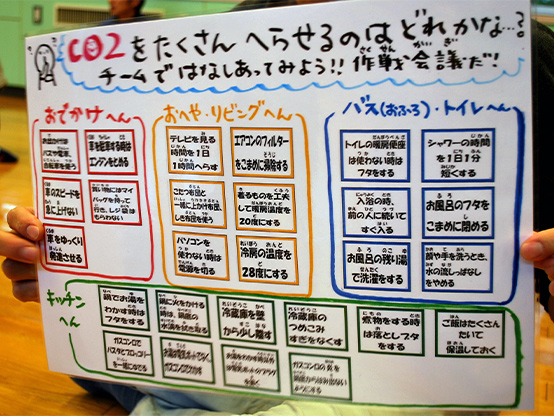 CO2をたくさんへらせるのはどれかな…?
チームではなしあってみよう!!作戦会議だ!
さくせんかいぎ
おでかけへん
お出かけは
バスや電車、
自転車を使う
車を駐車する時は
エンジンをとめる
車のスピードを
急に上げない
買い物にはマイ
バッグを持って
行き、レジ袋は
もらわない
車をゆっくり
発進させる
おへや・リビングへん
テレビを見る
時間を1日
1時間へらす
エアコンのフィルター
をこまめに掃除する
こたつ布団と
一緒に上かけ布団、
しき布団を使う
着るものを工夫
して暖房温度を
20度にする
パソコンを
使わない時は
電源を切る
冷房の温度を
28度にする
バス(おふろ)・トイレへん
トイレの暖房便座
は使わない時は
フタをする
シャワーの時間
を1日1分
短くする
入浴の時、
前の人に続いて
すぐ入る
お風呂のフタを
こまめに閉める
お風呂の残り湯
で洗濯をする
顔や手を洗うとき、
水の流しっぱなし
をやめる
キッチンへん
鍋でお湯を
わかす時は
フタをする
鍋に火をかける
時は、鍋底の
水滴を拭き取る
冷蔵庫を壁
から少し離す
冷蔵庫の
つめこみ
すぎをなくす
煮物をする時
は落としフタ
をする
ご飯はたくさん
たいて
保温しておく
ガスコンロで
パスタとブロッコリー
を一緒にゆでる